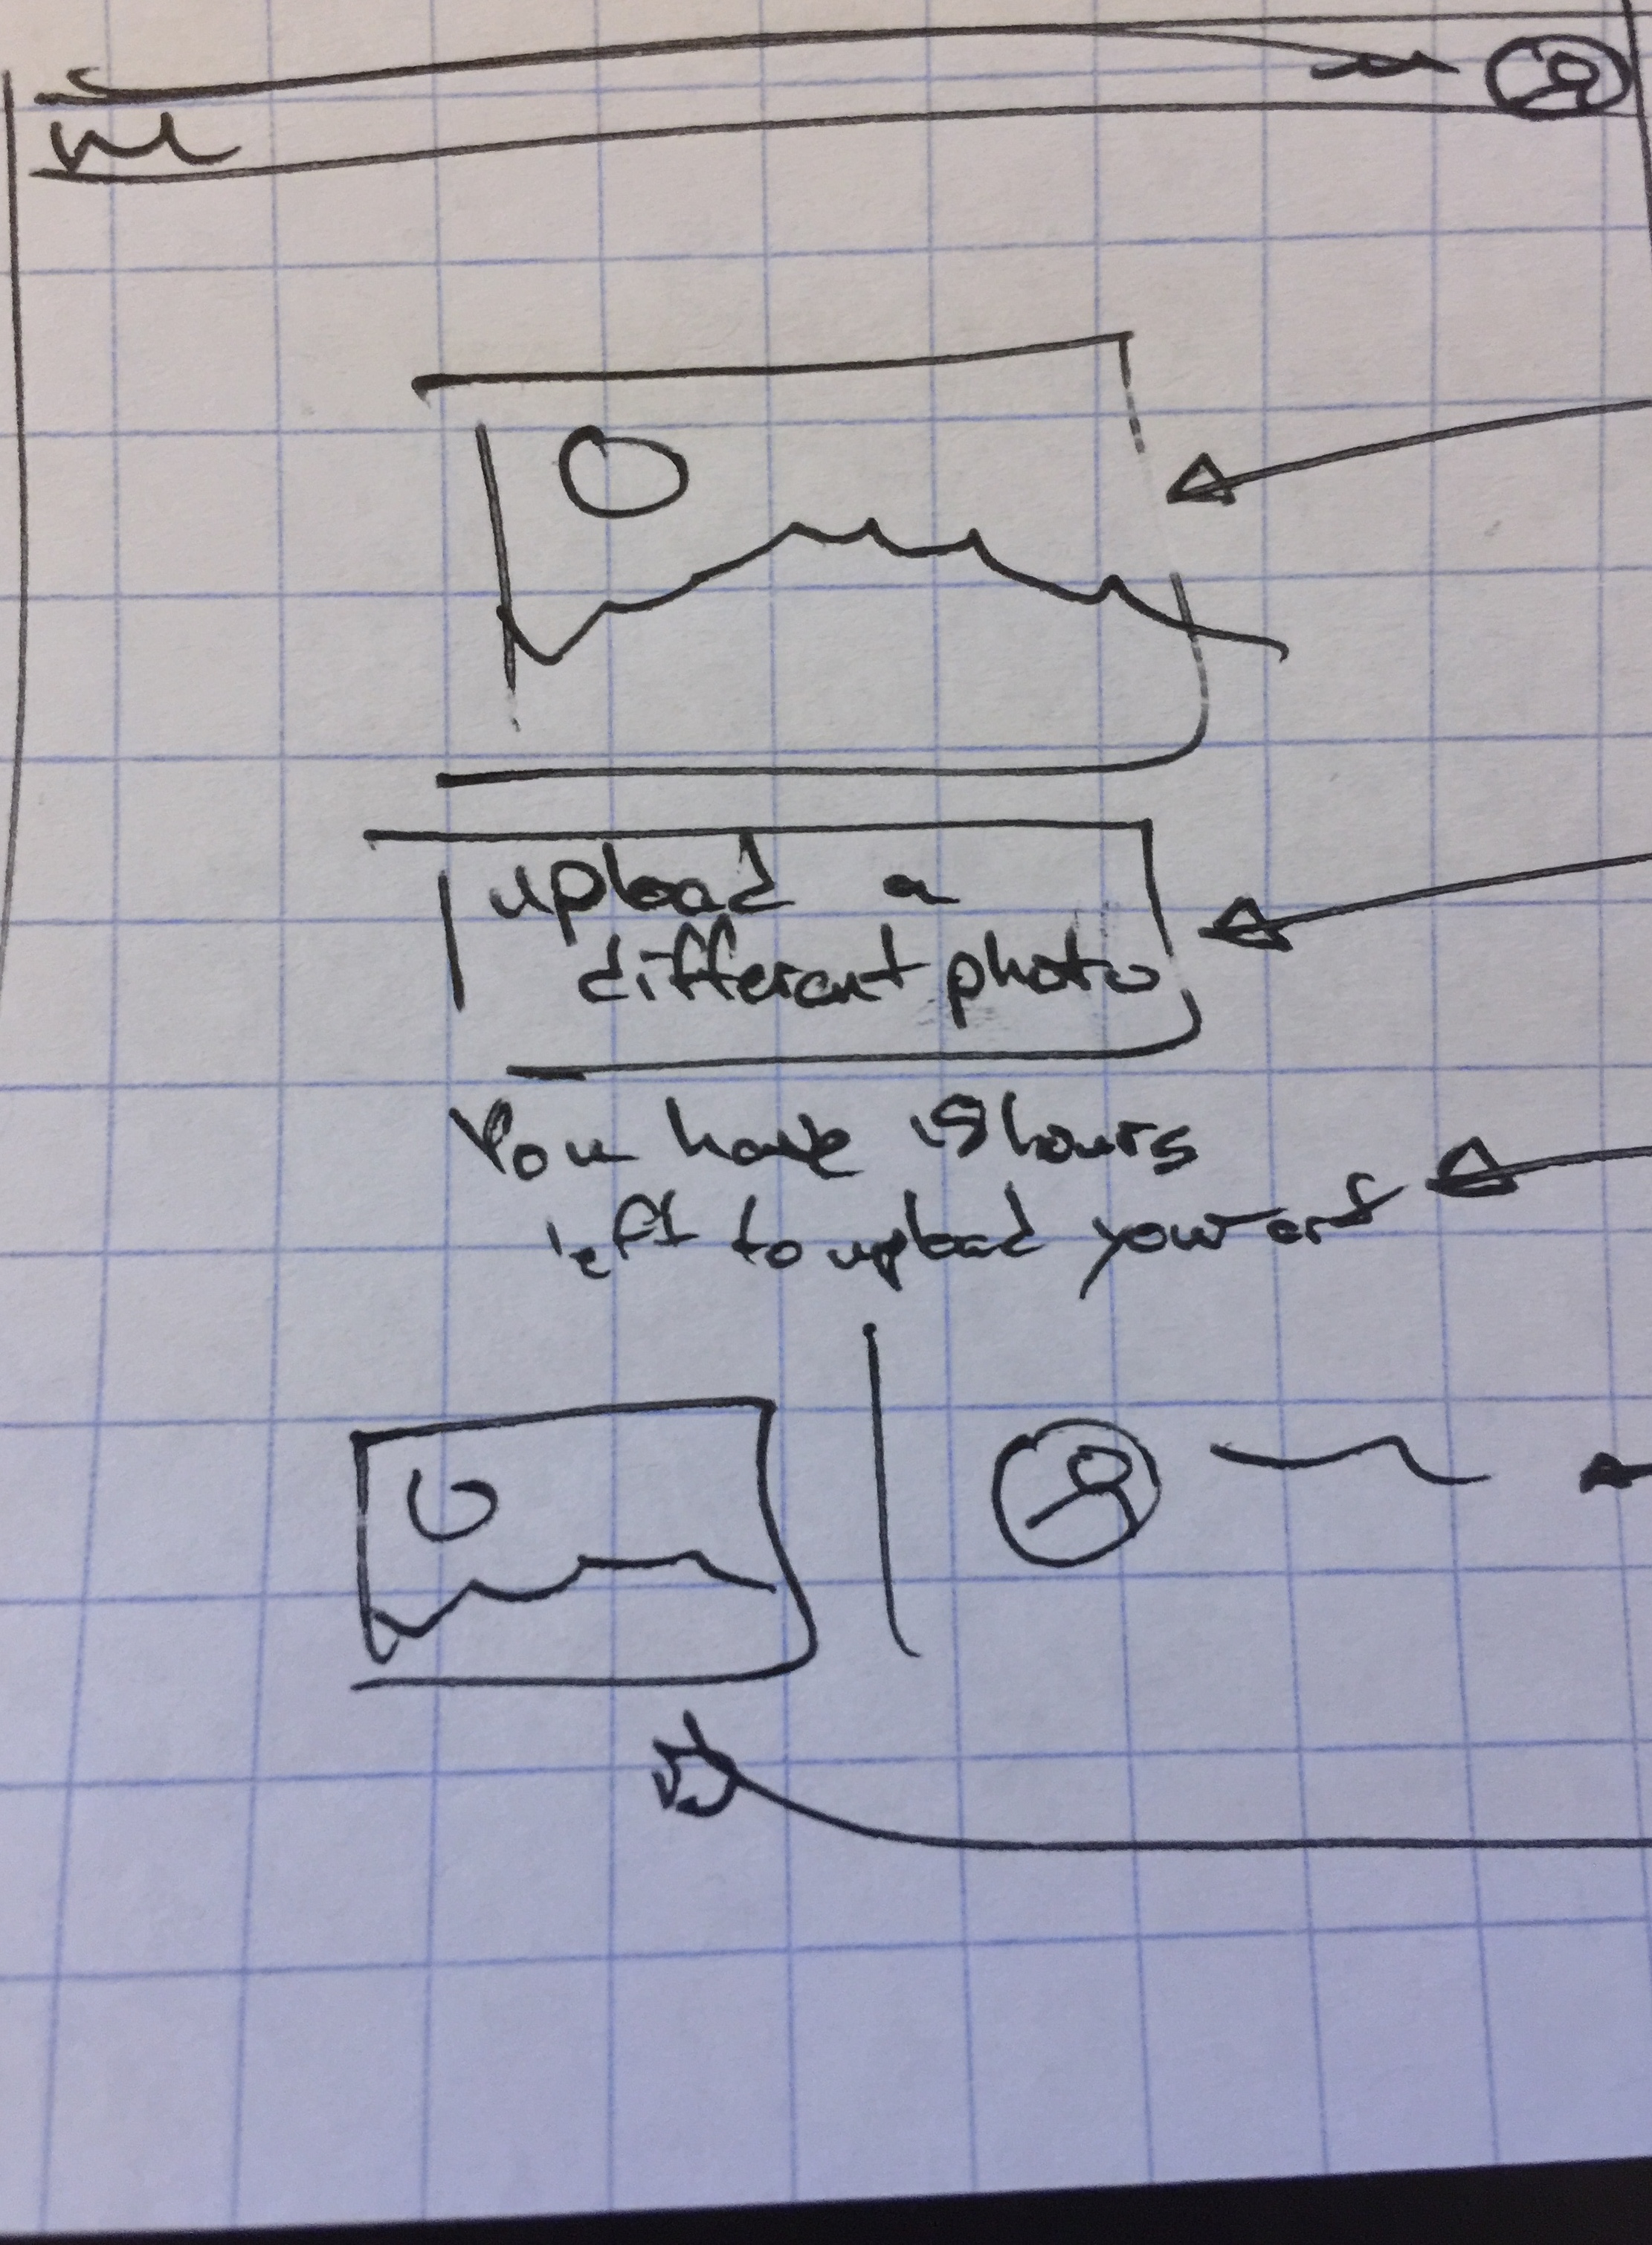 upload a
different photo
You have 19 hours
left to upload your art